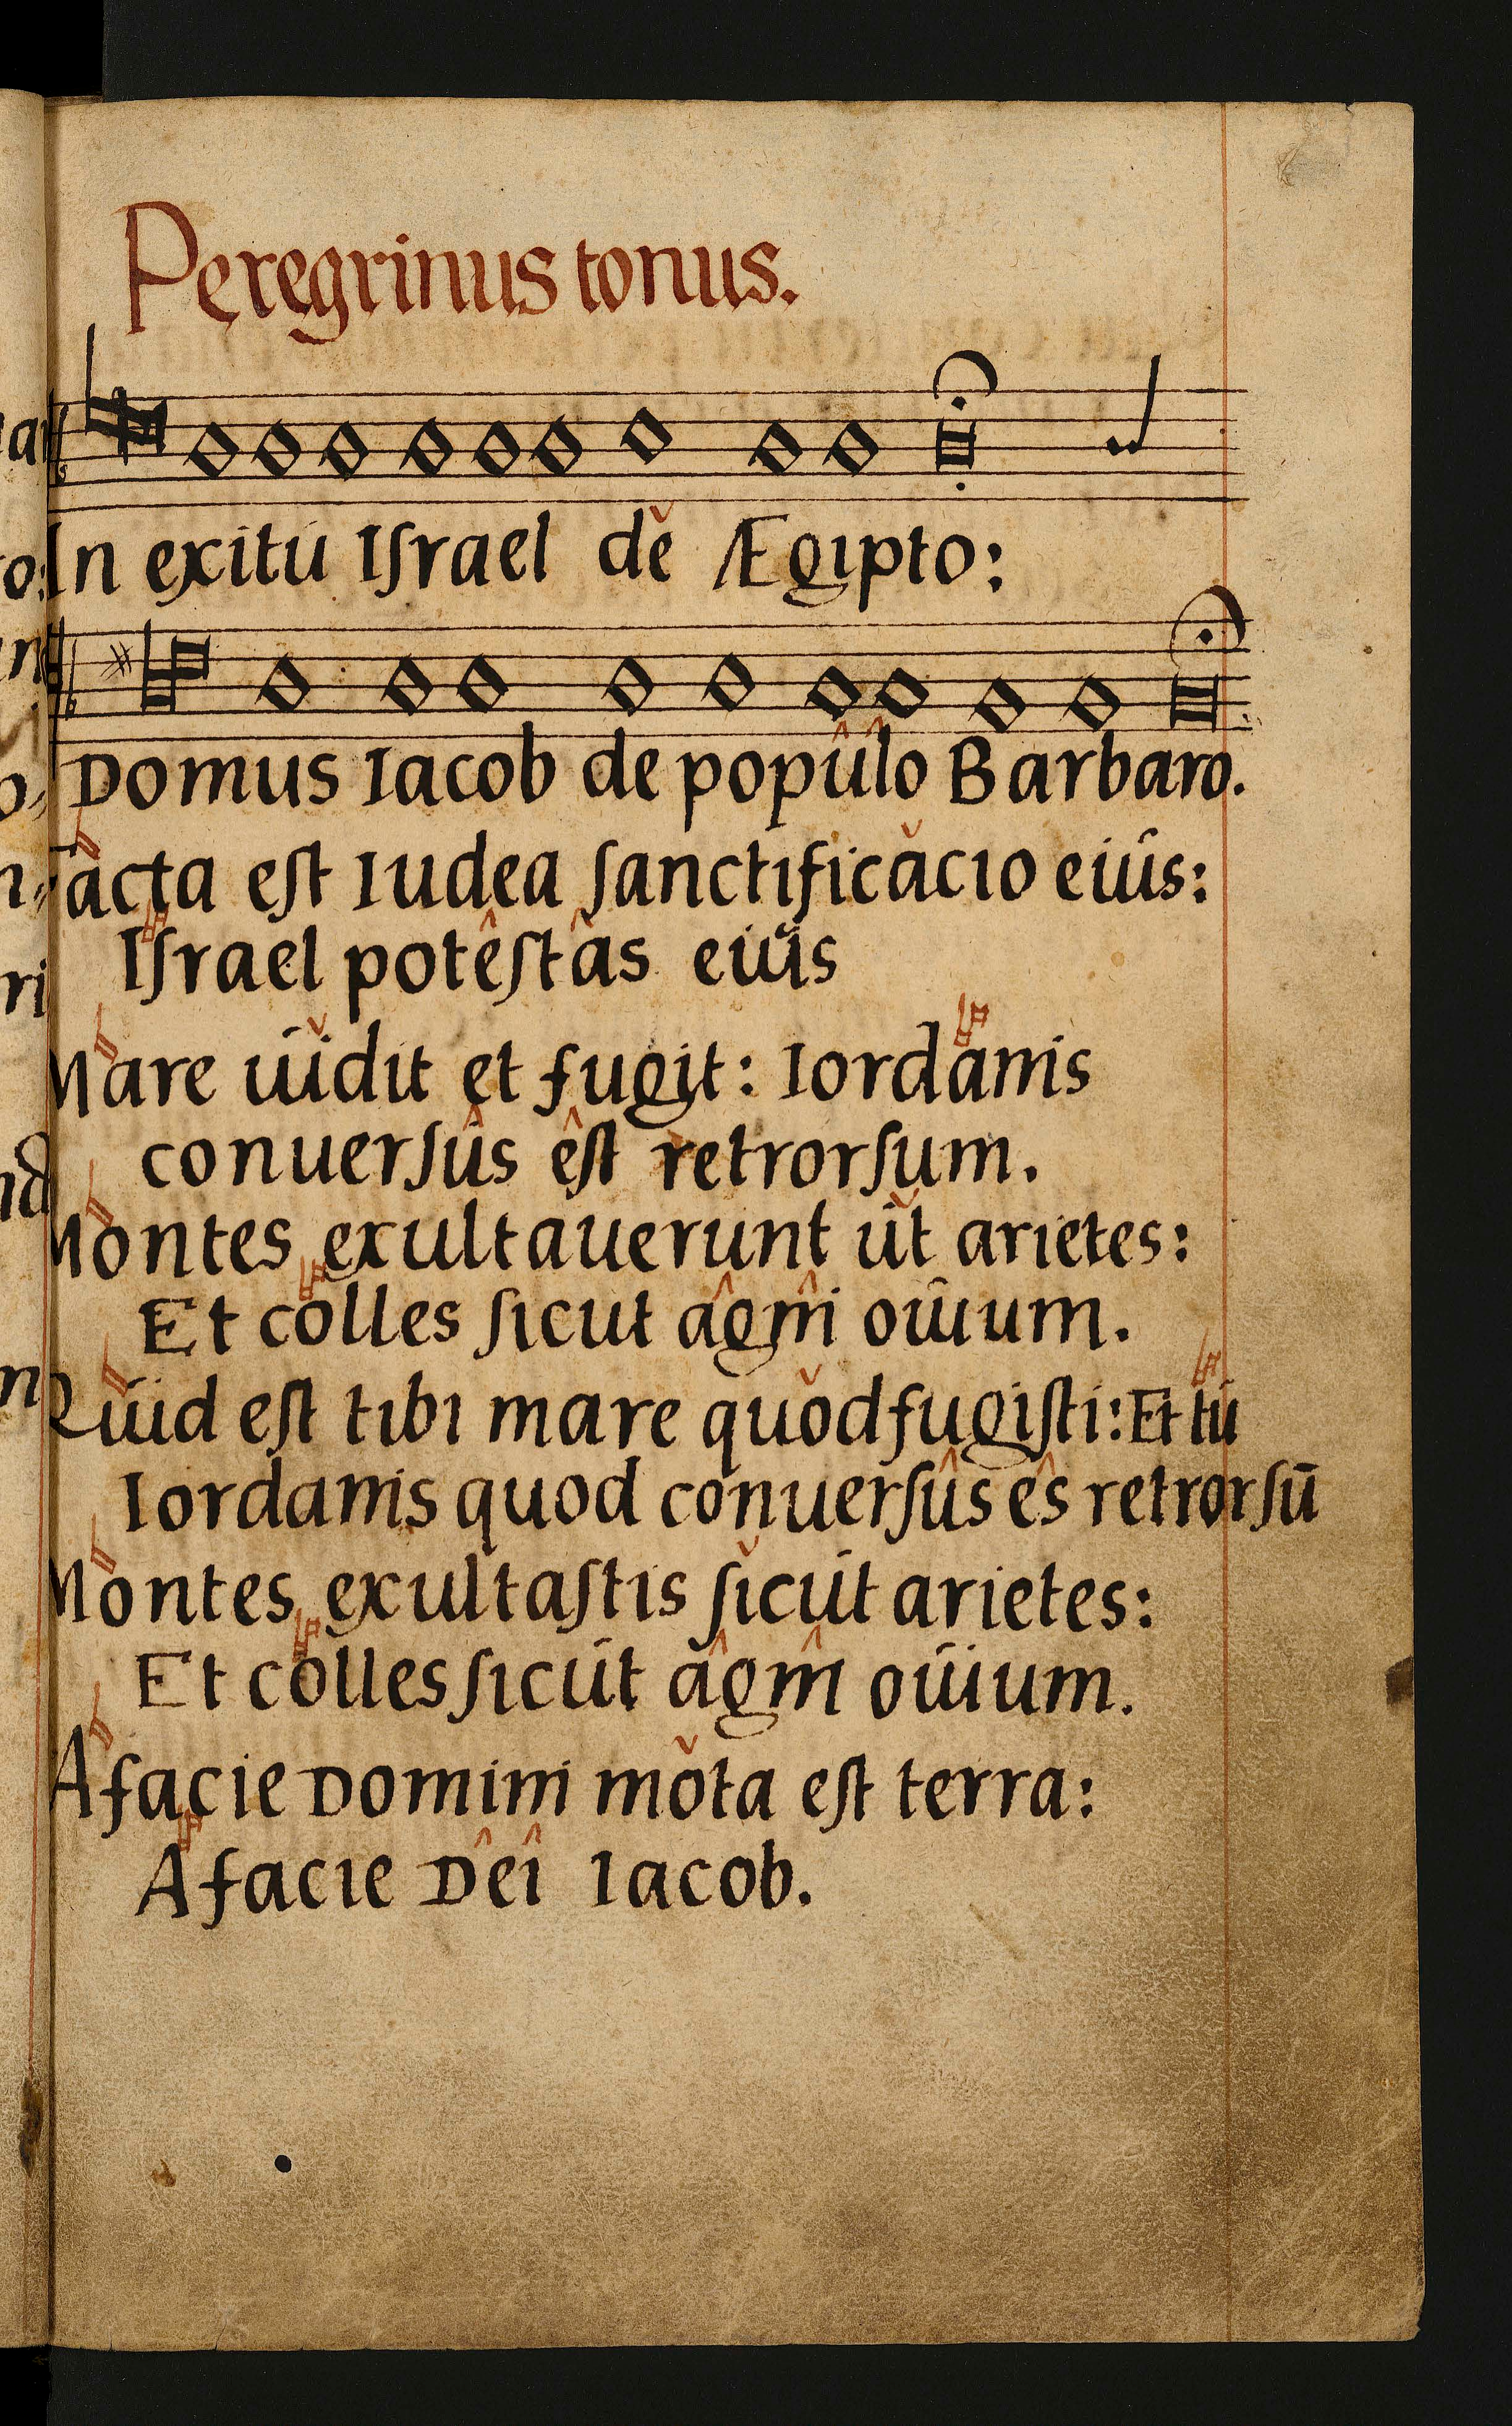 Peregrinus tonus.
In exitu Iſrael de Ægipto:
Domus Iacob de populo Barbaro.
acta eſt Iudea ſanctificacio eius:
Iſrael poteſtas eius
Mare uidit et fugit: Iordanis
conuerſus eſt retrorſum.
Montes exultauerunt ut arietes:
Et colles ſicut agni ouium.
Quid eſt tibi mare quod fugiſti: Et tu
Iordanis quod conuerſus es retrorſū
Montes exultaſtis ſicut arietes:
Et colles ſicut agni ouium.
A facie Domini mota eſt terra:
A facie Dei Iacob.